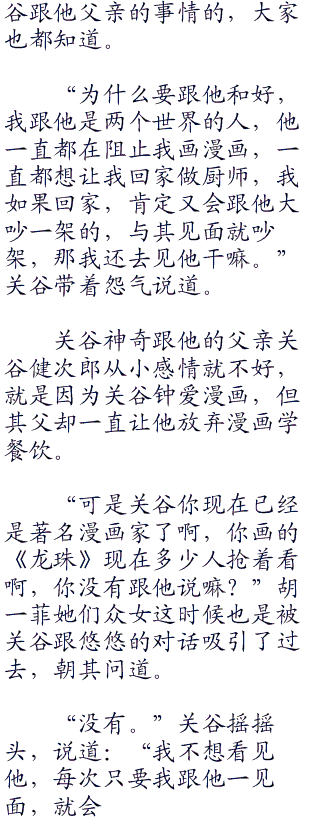 谷跟他父亲的事情的，大家
也都知道。
“为什么要跟他和好，
我跟他是两个世界的人，他
一直都在阻止我画漫画，一
直都想让我回家做厨师，我
如果回家，肯定又会跟他大
吵一架的，与其见面就吵
架，那我还去见他干嘛。”
关谷带着怨气说道。
关谷神奇跟他的父亲关
谷健次郎从小感情就不好，
就是因为关谷钟爱漫画，但
其父却一直让他放弃漫画学
餐饮。
“可是关谷你现在已经
是著名漫画家了啊，你画的
《龙珠》现在多少人抢着看
啊，你没有跟他说嘛？”胡
一菲她们众女这时候也是被
关谷跟悠悠的对话吸引了过
去，朝其问道。
“没有。”关谷摇摇
头，说道：“我不想看见
他，每次只要我跟他一见
面，就会